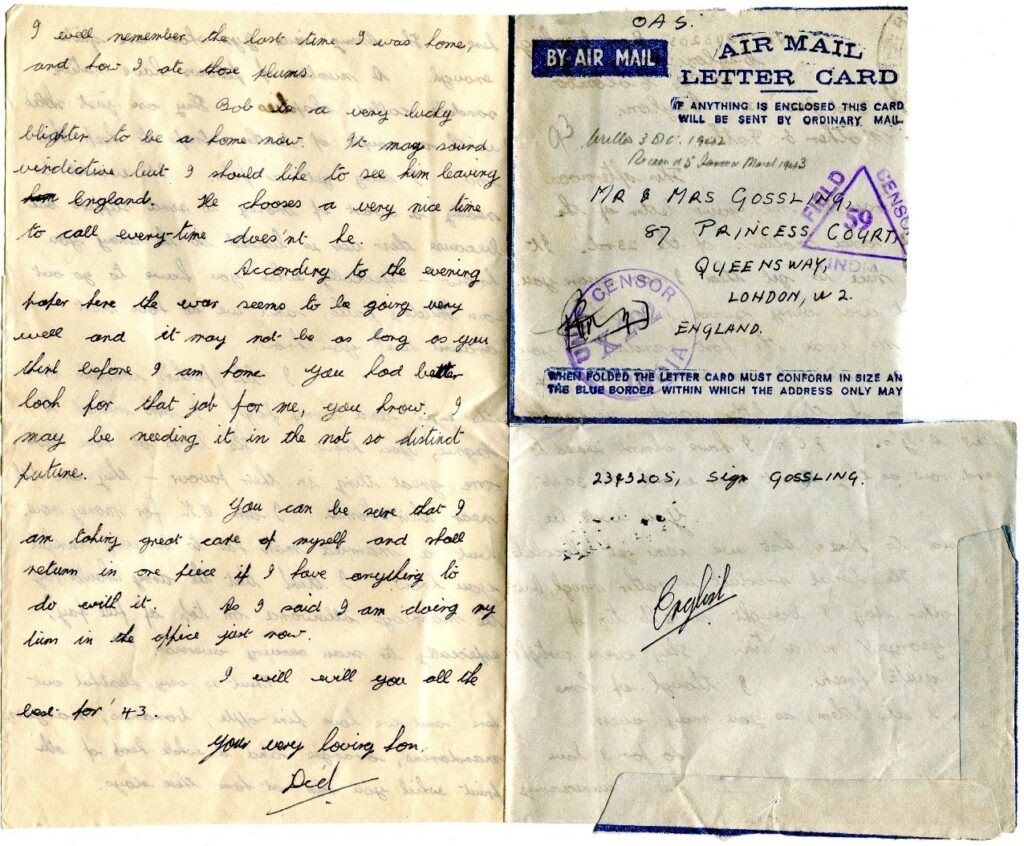 I well remember the last time I was home
and how I ate those plums.
Bob is a very lucky
blighter to be a home now. It may sound
vindictive but I should like to see him leaving
him England. He chooses a very nice time
to call every-time does'nt he.
According to the evening
paper here the war seems to be going very
well and it may not be as long as you
think before I am home. You had better
look for that job for me, you know. I
may be needing it in the not so distinct
future.
You can be sure that I
am taking great care of myself and shall
return in one piece if I have anything to
do with it. As I said I am doing my
turn in the office just now.
I will will you all the
best for '43.
Your very loving son.
OAS.
BY AIR MAIL
AIR MAIL
LETTER CARD
IF ANYTHING IS ENCLOSED THIS CARD
WILL BE SENT BY ORDINARY MAIL.
1942
1943
MR & MRS GOSSLING,
87 PRINCESS COURT,
QUEENSWAY,
LONDON, W2.
ENGLAND.
FIELD CENSOR
59
INDIA
CENSOR
WHEN FOLDED THE LETTER CARD MUST CONFORM IN SIZE AN
THE BLUE BORDER WITHIN WHICH THE ADDRESS ONLY MAY
2343205, Sign GOSSLING.
English